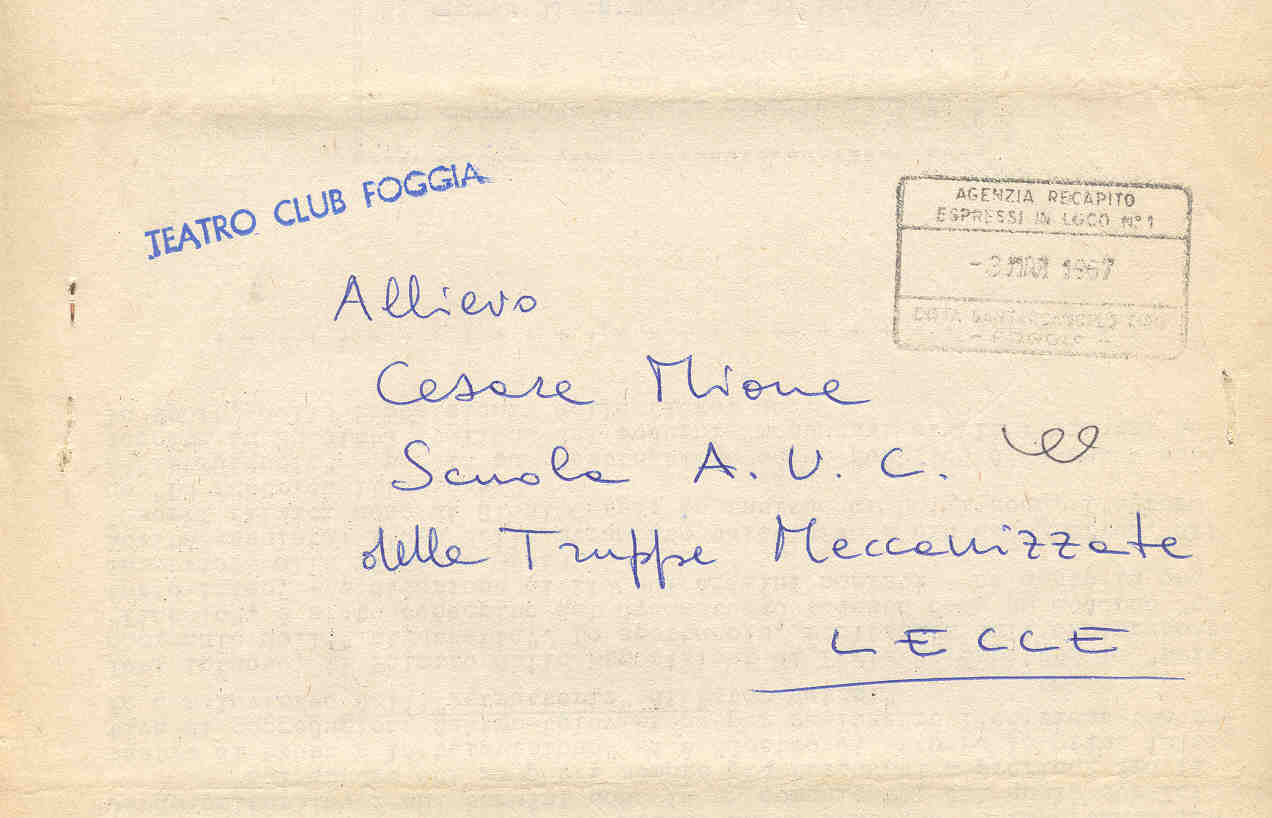 TEATRO CLUB FOGGIA
AGENZIA RECAPITO
ESPRESSI IN LOCO Nº 1
1967
Allievo
Cesare Mione
Scuola A. U. C.
delle Truppe Meccanizzate
LECCE